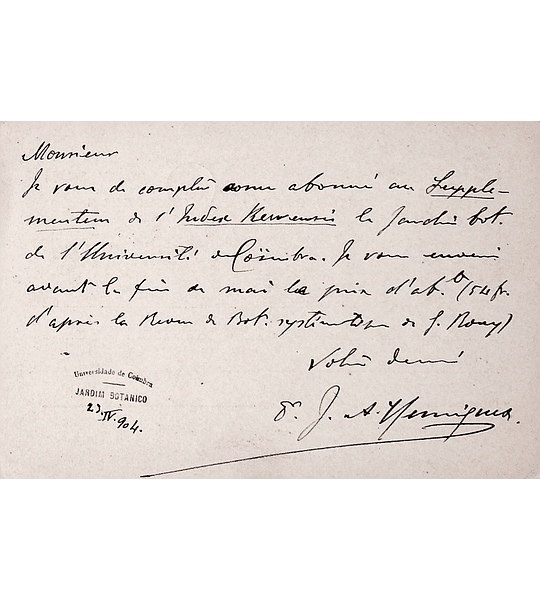 Monsieur
Je vous de compter comme abonné au Supple-
mentum de l'Index Kewensis le Jardin bot.
de l'Université de Coïmbra. Je vous
avant la fin de mai le prix d'ab.t (54 fr.
d'après la Revue de Bot. systématique de G. Rouy)
Votre
Dr. J. A. Henriques.
Universidade de Coimbra
JARDIM BOTANICO
23.IV.904.